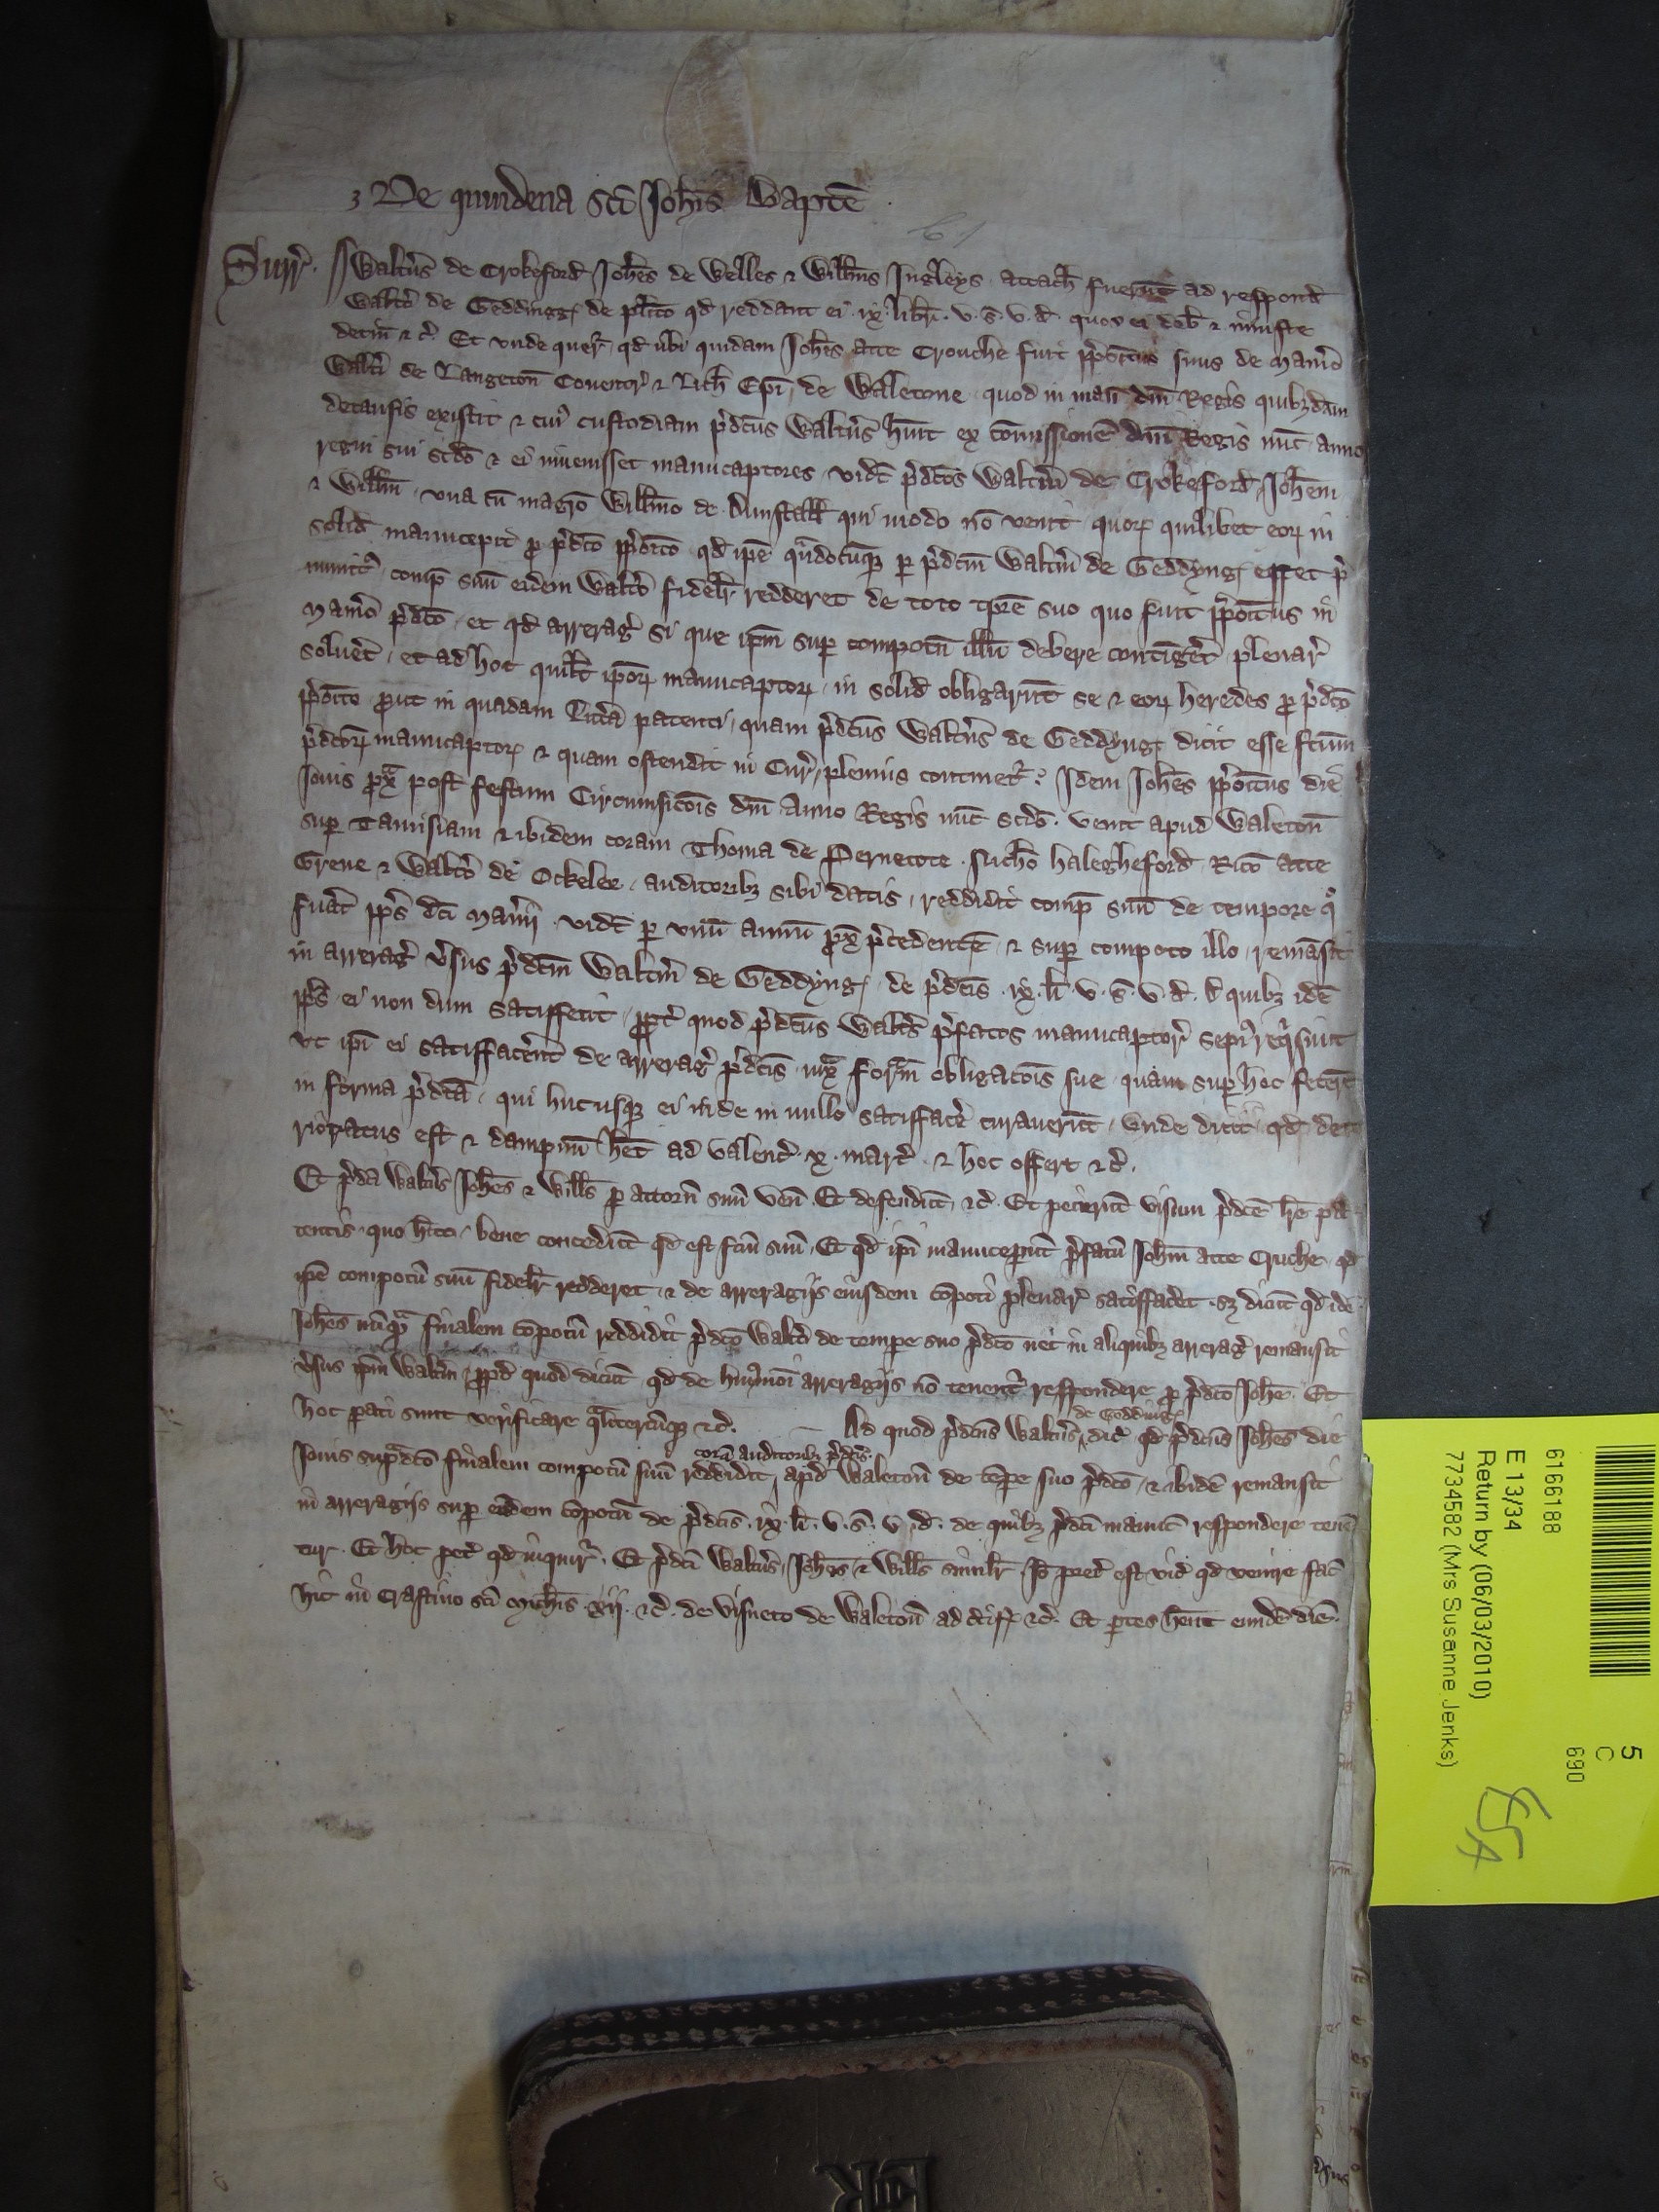 De quindena sc̄i Joħis Bapt̄e
6
Surr̛. Walt̄us de Crokeford Joħes de Welles ⁊ Willm̄s Jngleys attach̄ fuerūt ad respond̄
Walt̄o de Geddingg̛ de plīto qd̄ reddant ei ix libr̄. v. s̄. v. d̄. quos ei deb̄ ⁊ iniuste
detin̄ ⁊ c̄. Et vnde quer̄ qd̄ ubi quidam Joħes atte Crouche fuit pp̄oītus suus de Man̄io
Walt̄i de Langeton̄ Couentr̄ ⁊ Lich̄ Ep̄i, de Waletone quod in man̄ dn̄i Regis quibȝdam
de causis existit ⁊ cui᷒ custodiam p̄dc̄us Walt̄us h̄uit ex com̄issione dn̄i Regis nūc anno
regni sui sc̄do ⁊ ei inuenisset manucaptores vidt̄ p̄dc̄os Walt̄m de Crokeford, Joħem
⁊ Willm̄, vna cū magr̄o Willm̄o de Dunstall̄ qui modo nō venit quoꝝ quilibet eoꝝ in
solid̄ manucepit ꝓ p̄dc̄o pp̄oīto qd̄ ip̄e qn̄docūqꝫ ꝑ p̄dc̄m Walt̄m de Geddyng̛ esset p̄
munit᷒ comp̄ suū eidem Walt̄o fidelit̄ redderet de toto tp̄re suo quo fuit pp̄oītus in
Man̄io p̄dc̄o, et qd̄ arrerag̛ si que ip̄m suꝑ compotū illū debere contīget̄ plenar̄
soluet̄, et ad hoc quilt̄ ip̄oꝝ manucaptoꝝ in solid̄ obligarūt se ⁊ eoꝝ heredes ꝓ p̄dc̄o
pp̄oīto ꝓut in quadam litt̄a patenti, quam p̄dc̄us Walt̄us de Geddyng̛ dicit esse fc̄um
p̄dc̄oꝝ manucaptoꝝ ⁊ quam ostendit in Cur̄, plenius continet᷒. Jdem Joħes pp̄oītus die
Jouis ꝓx̄ post festum Circumsic̄ois dn̄i Anno Regis nūc sc̄do. venit apud Waleton̄
suꝑ Tamisiam ⁊ ibidem coram Thoma de Pernecote Nicho halegheford Ric̄o atte
Grene ⁊ Walt̄o de Ockelee. auditoribȝ sibi datis, reddidit comp̄ suū de tempore qͦ
fuat̄ pp̄s dc̄i Man̄ii vidt̄ ꝑ vnū annū ꝓx̄ p̄cedentē ⁊ suꝑ compoto illo remāsit
in arrerag̛ ᷓv̄sus p̄dc̄m Walt̄m de Geddyng̛, de p̄dc̄is ix. li. v. s̄. v. d̄. d̄ quibȝ idē
pp̄s ei non dum satisfecit, ꝓpt̄ quod p̄dc̄us Walt̄s p̄fatos manucaptor̄ sepi᷒ req̄siuit
vt ip̄i ei satisfac̄ent de arrerag̛ p̄dc̄is iux̄ form̄ obligac̄ois sue quam suꝑ hoc fecerūt
in forma p̄dc̄a, qui hucusqꝫ ei inde in nullo satisfac̄e curauerūt, Unde dicit qd̄ dete
rioratus est ⁊ dampnū h̄et ad valenc̄ x marc̄. ⁊ hoc offert ⁊ c̄.
Et p̄dc̄i Walt̄us Joħes ⁊ Will̄s ꝑ attorn̄ suū ven̄. Et defendūt, ⁊ c̄. Et petierūt visum p̄dc̄e lr̄e pa
tentis quo h̄ito, bene concedūt qd̄ est fc̄m suū, Et qd̄ ip̄i manuceꝑunt p̄fatū Joħm atte Cruche, qd̄
ip̄e compotū suū fidelit̄ redderet ⁊ de arreragiis eiusdem cōpoti plenar̄ satisfac̄et. sȝ dicūt qd̄ idē
Joħes nūqᷓ finalem cōpotū reddidit p̄dc̄o Walt̄o de temꝑe suo p̄dc̄o nec in aliquibȝ arrerag̛ remansit
v̄sus ip̄m Walt̄m ꝓpt̄ quod dicūt qd̄ de hui᷒modi arreragiis nō tenent᷒ respondere ꝓ p̄dc̄o Joħe. Et
hoc pati sunt verificare qᷓlitercūqꝫ ⁊ c̄. — Ad quod p̄dc̄us Walt̄us de Gedding̛ dic̄ qd̄ p̄dc̄us Joħes die
Jouis supᷓdc̄o finalem compotū suū reddidit corā auditoribȝ p̄dc̄is apd̄ Waleton̄ de tēpe suo p̄dc̄o, ⁊ ibidē remansit
in arreragiis suꝑ eodem cōpotū de p̄dc̄is. ix. li. v. s̄. v. d̄. de quibȝ p̄dc̄i manuc̄ respondere tenē
tur. Et hoc pet̄ qd̄ inquir᷒. Et p̄dc̄i Walt̄us, Joħes ⁊ Will̄s similit̄. Jō prec̄ est vic̄ qd̄ venire fac̄
hic in Crastino sc̄i Micħis xii. ⁊ c̄. de visneto de Waleton̄ ad c̄tif. ⁊ c̄. Et ꝑtes h̄ent eundē diē.
6166188
E 13/34
Return by (06/03/2010)
7734582 (Mrs Susanne Jenks)
5
C
690